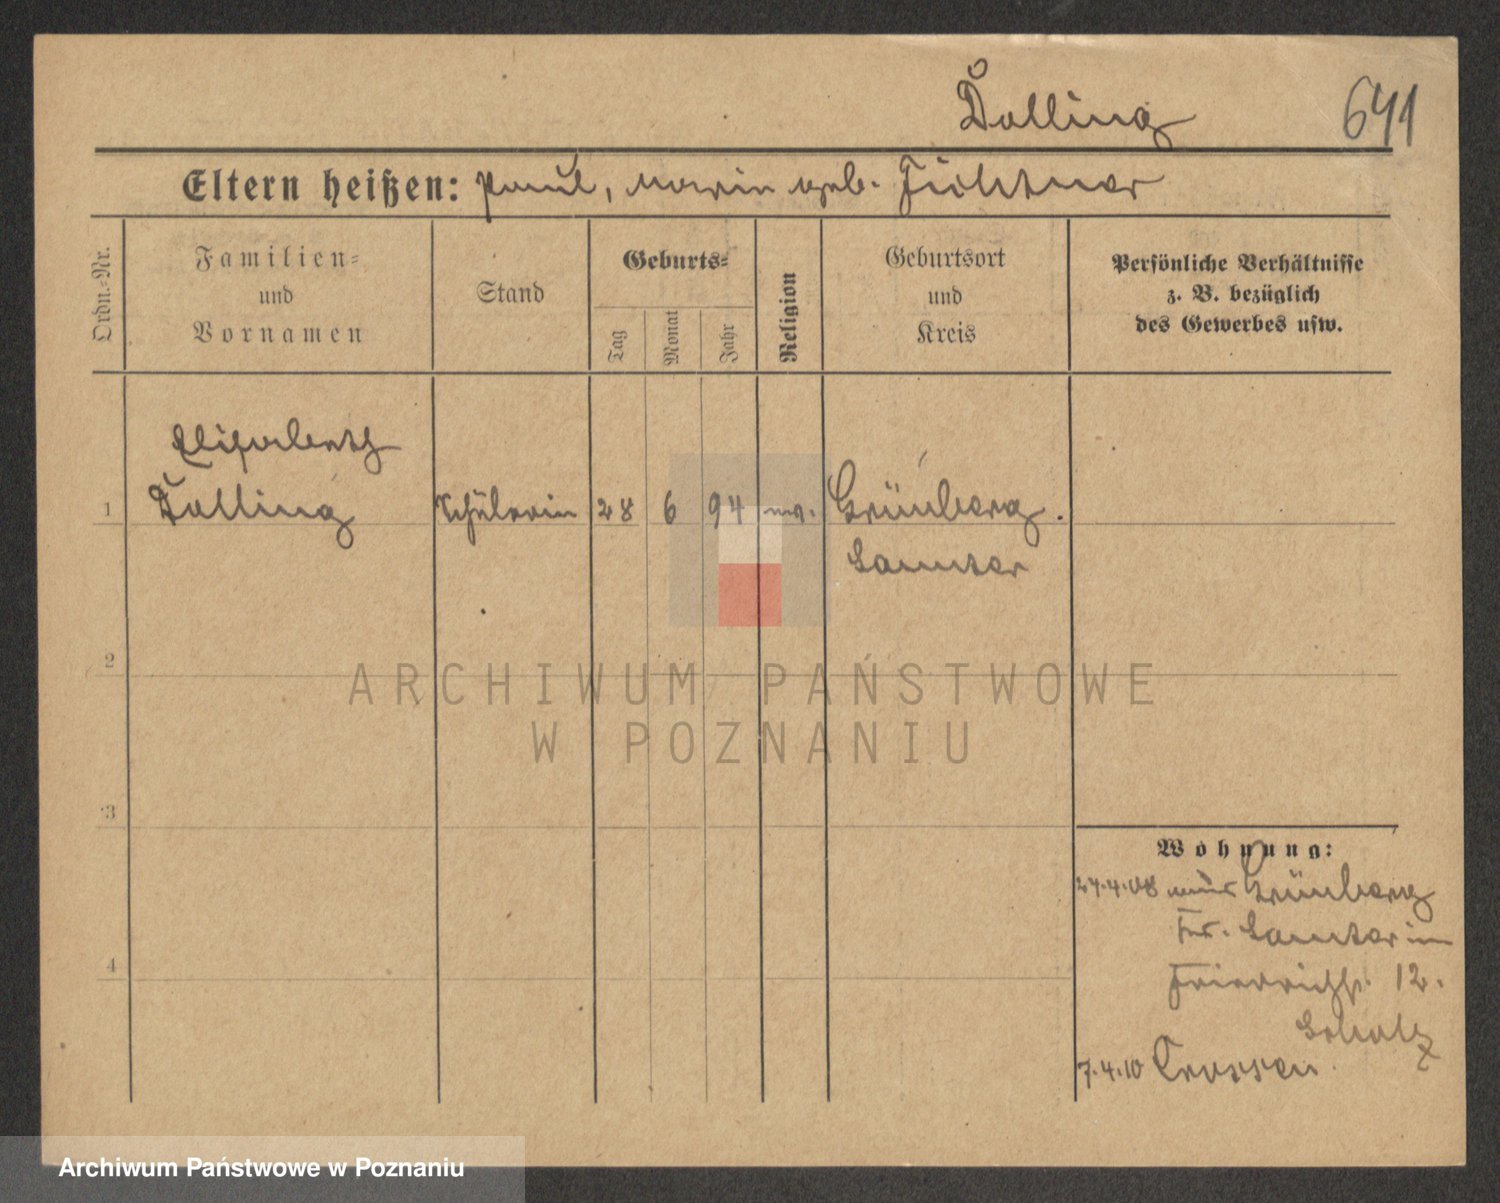 Dolling
641
Eltern heißen: Paul, Marie geb. Fichtner
Ordn.-Nr.
Familien-
und
Vornamen
Stand
Geburts-
Tag
Monat
Jahr
Religion
Geburtsort
und
Kreis
Persönliche Verhältnisse
z. B. bezüglich
des Gewerbes usw.
Elisabeth
1 Dolling Schülerin 28 6 94 Grünberg.
Samter
2
3
4
ARCHIWUM PAŃSTWOWE
W POZNANIU
Wohnung:
24.4.08 aus Grünberg
Samter in
Friedrichstr. 12.
Scholz
7.4.10 Crossen
Archiwum Państwowe w Poznaniu